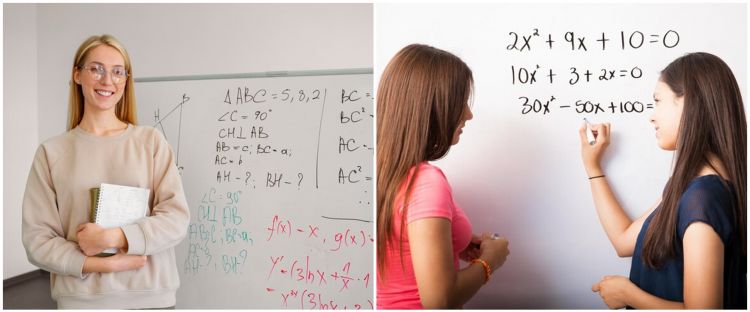 ΔABC = 5, 8, 2
∠C = 90°
CH⊥AB
AB = c; BC = a;
AC = b
AH - ?; BH - ?
BC =
BC² =
AC =
AC² =
∴
H
∠C = 90°
CH⊥AB
AH - ? BH - ?
f(x) - x, g(x)
y' = (3lnx + 1/x · 1
2x² + 9x + 10 = 0
10x² + 3 + 2x = 0
30x² - 50x + 100 =